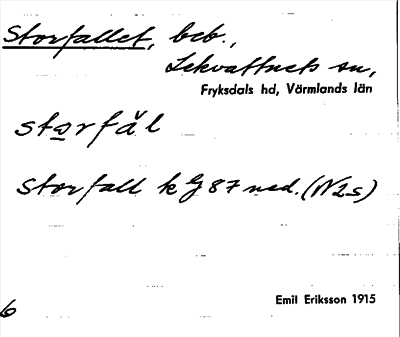 Storfallet, beb.,
Lekvattnets sn,
Fryksdals hd, Värmlands län
storfål
Storfall k G 87 ned. (N2s)
Emil Eriksson 1915
6